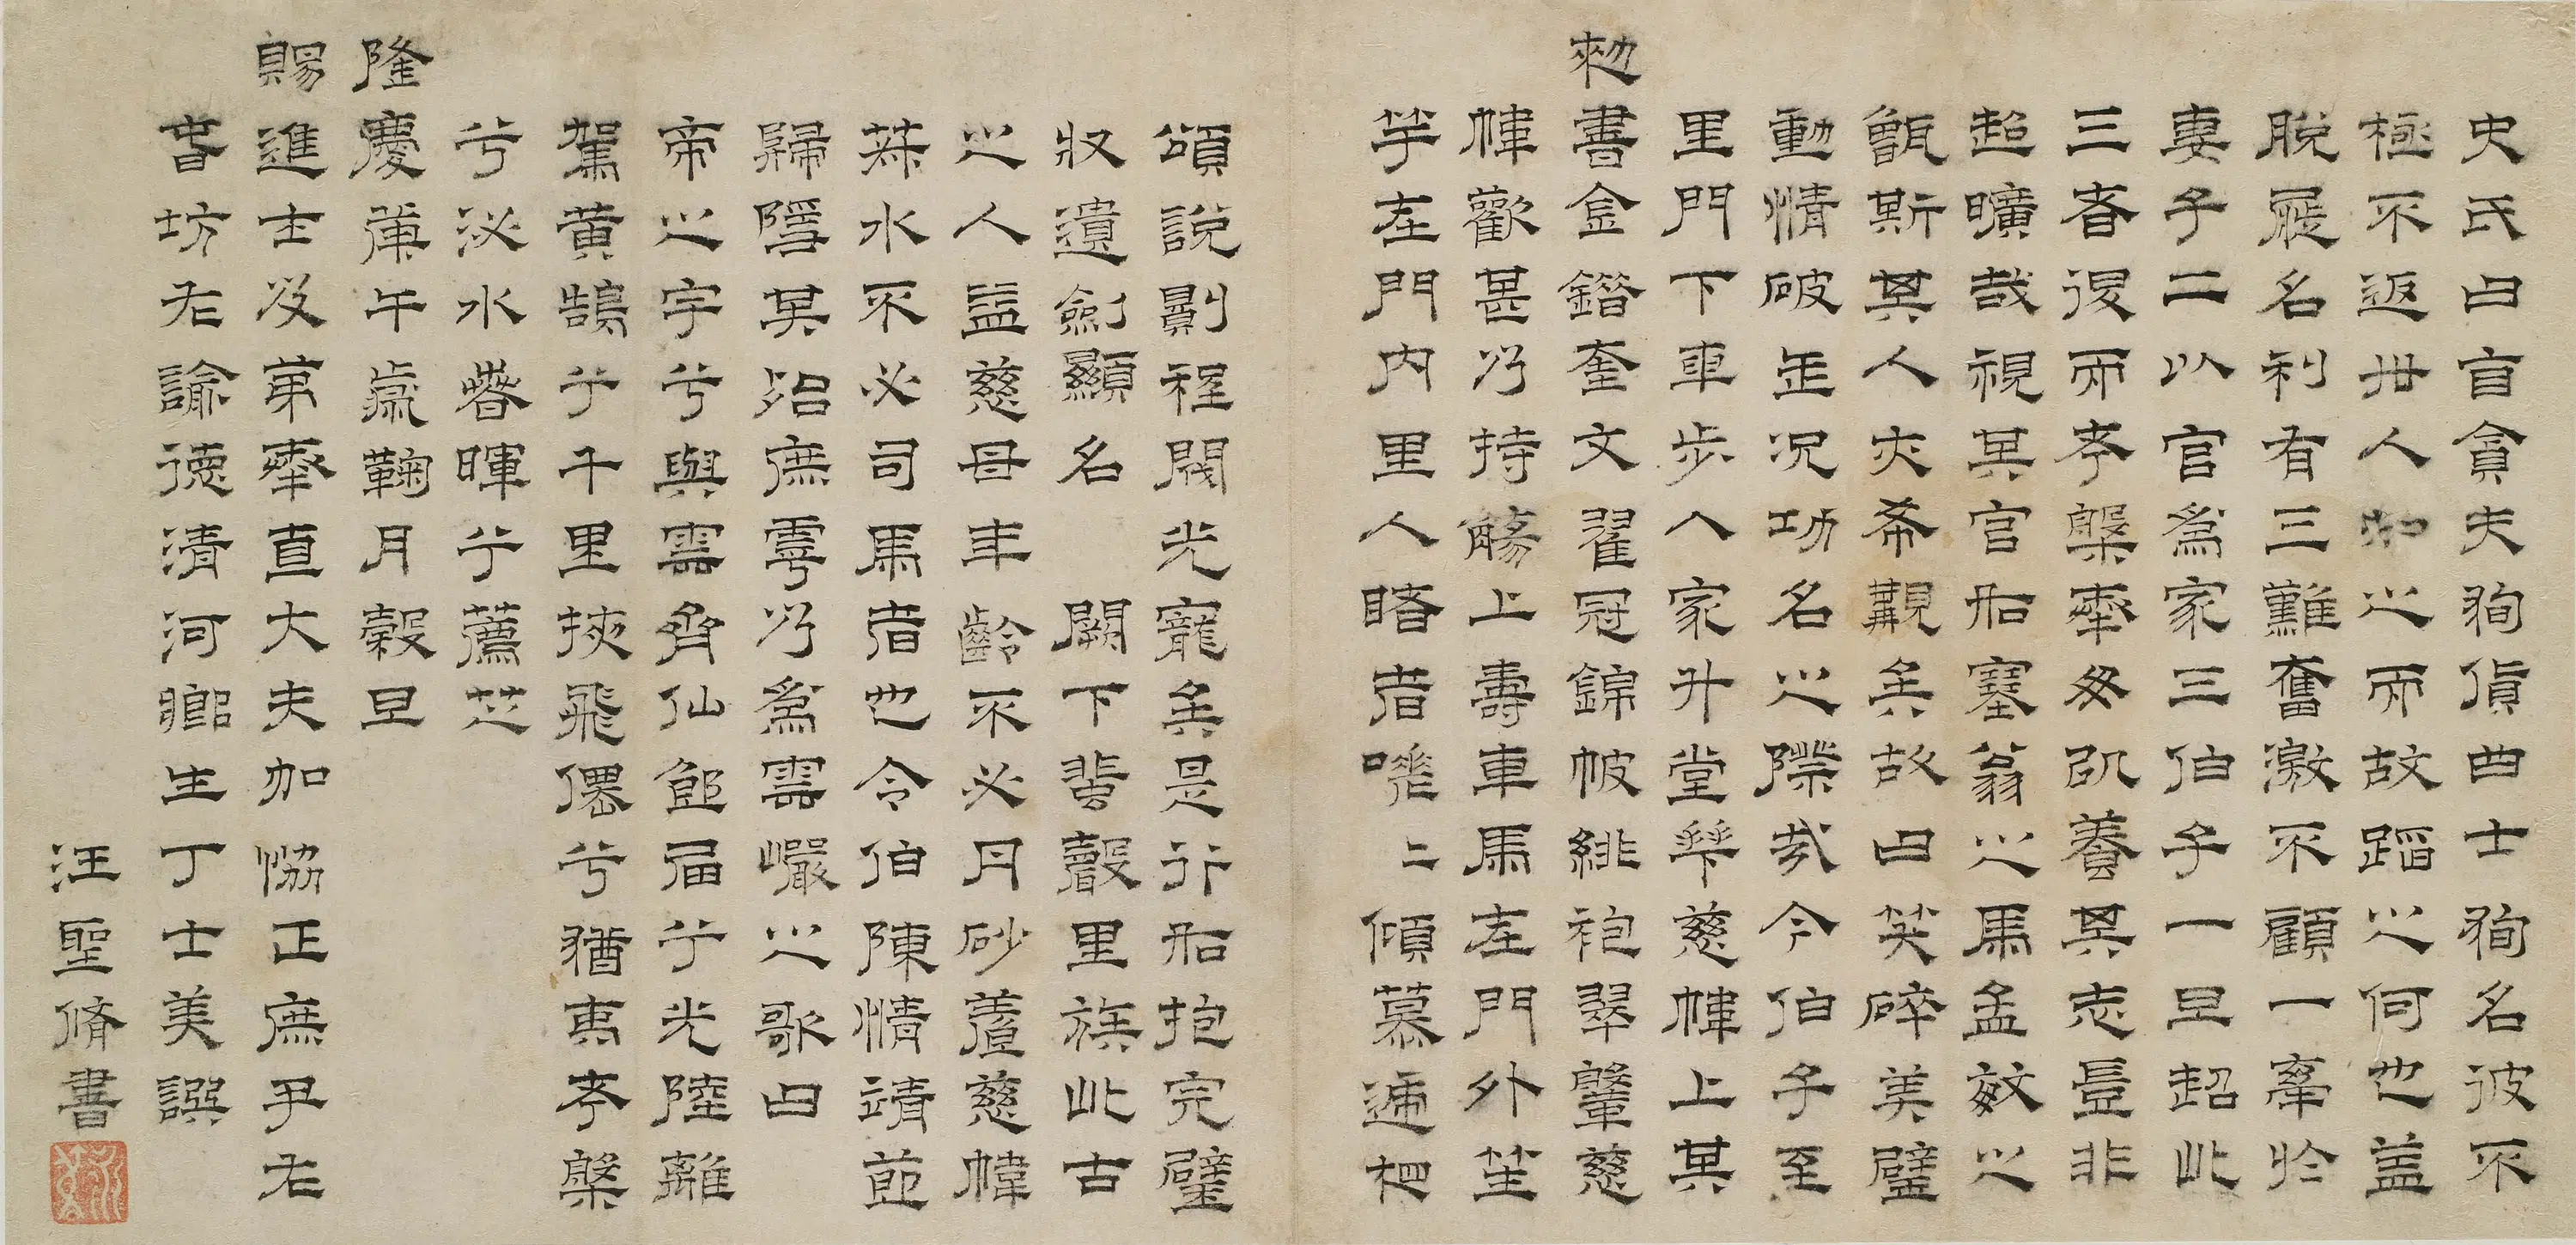 史氏曰盲貪夫狥貨曲士狥名彼不
極不返丗人之而故蹈之何也盖
脫屣名利有三難奮激不顧一率於
妻子二以官爲家三伯子一旦超此
三者復而考槃率俗凯養其志豈非
超曠哉視其官船塞翁之馬孟敏之
甑斯其人夾希覯矣故曰笑碎美璧
動情破缶况功名之際哉今伯子至
里門下車步入家升堂舉慈幃上其
勑書金鐕奎文翟冠錦帔緋袍翠鞶慈
幃歡甚乃持觴上壽車馬左門外笙
竽左門内里人睹者嘖二傾慕遞相
頌說剔程閥光寵矣是行船抱完璧
收遺劍顯名闕下蜚聲里族此古
之人益慈母年齡不必丹砂蘆慈幃
菽水不必司馬者也令伯陳情靖節
歸隱其殆庶雩乃爲雲巖之歌曰
帝之宇兮與雲齊仙郎届兮光陸離
駕黃鵠兮千里挾飛僊兮猶夷考槃
兮泌水春暉兮薦芝
隆慶庚午歲鞠月穀旦
賜進士及第奉直大夫加協正庶尹右
春坊右諭德清河郷生丁士美譔
汪聖脩書